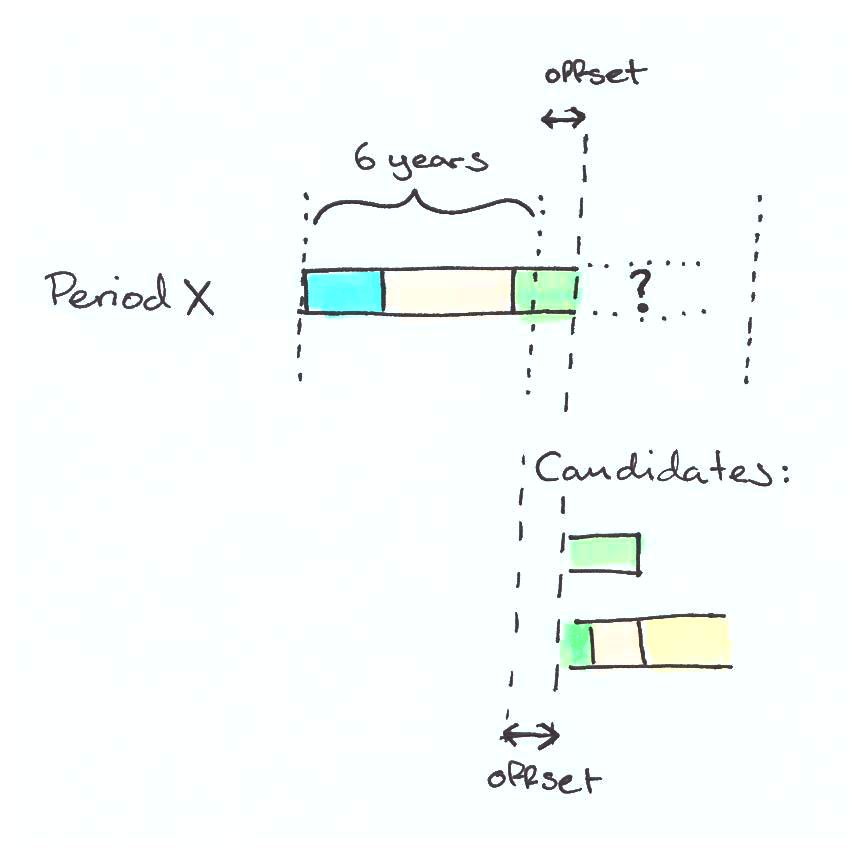 offset
6 years
Period X
?
Candidates:
offset